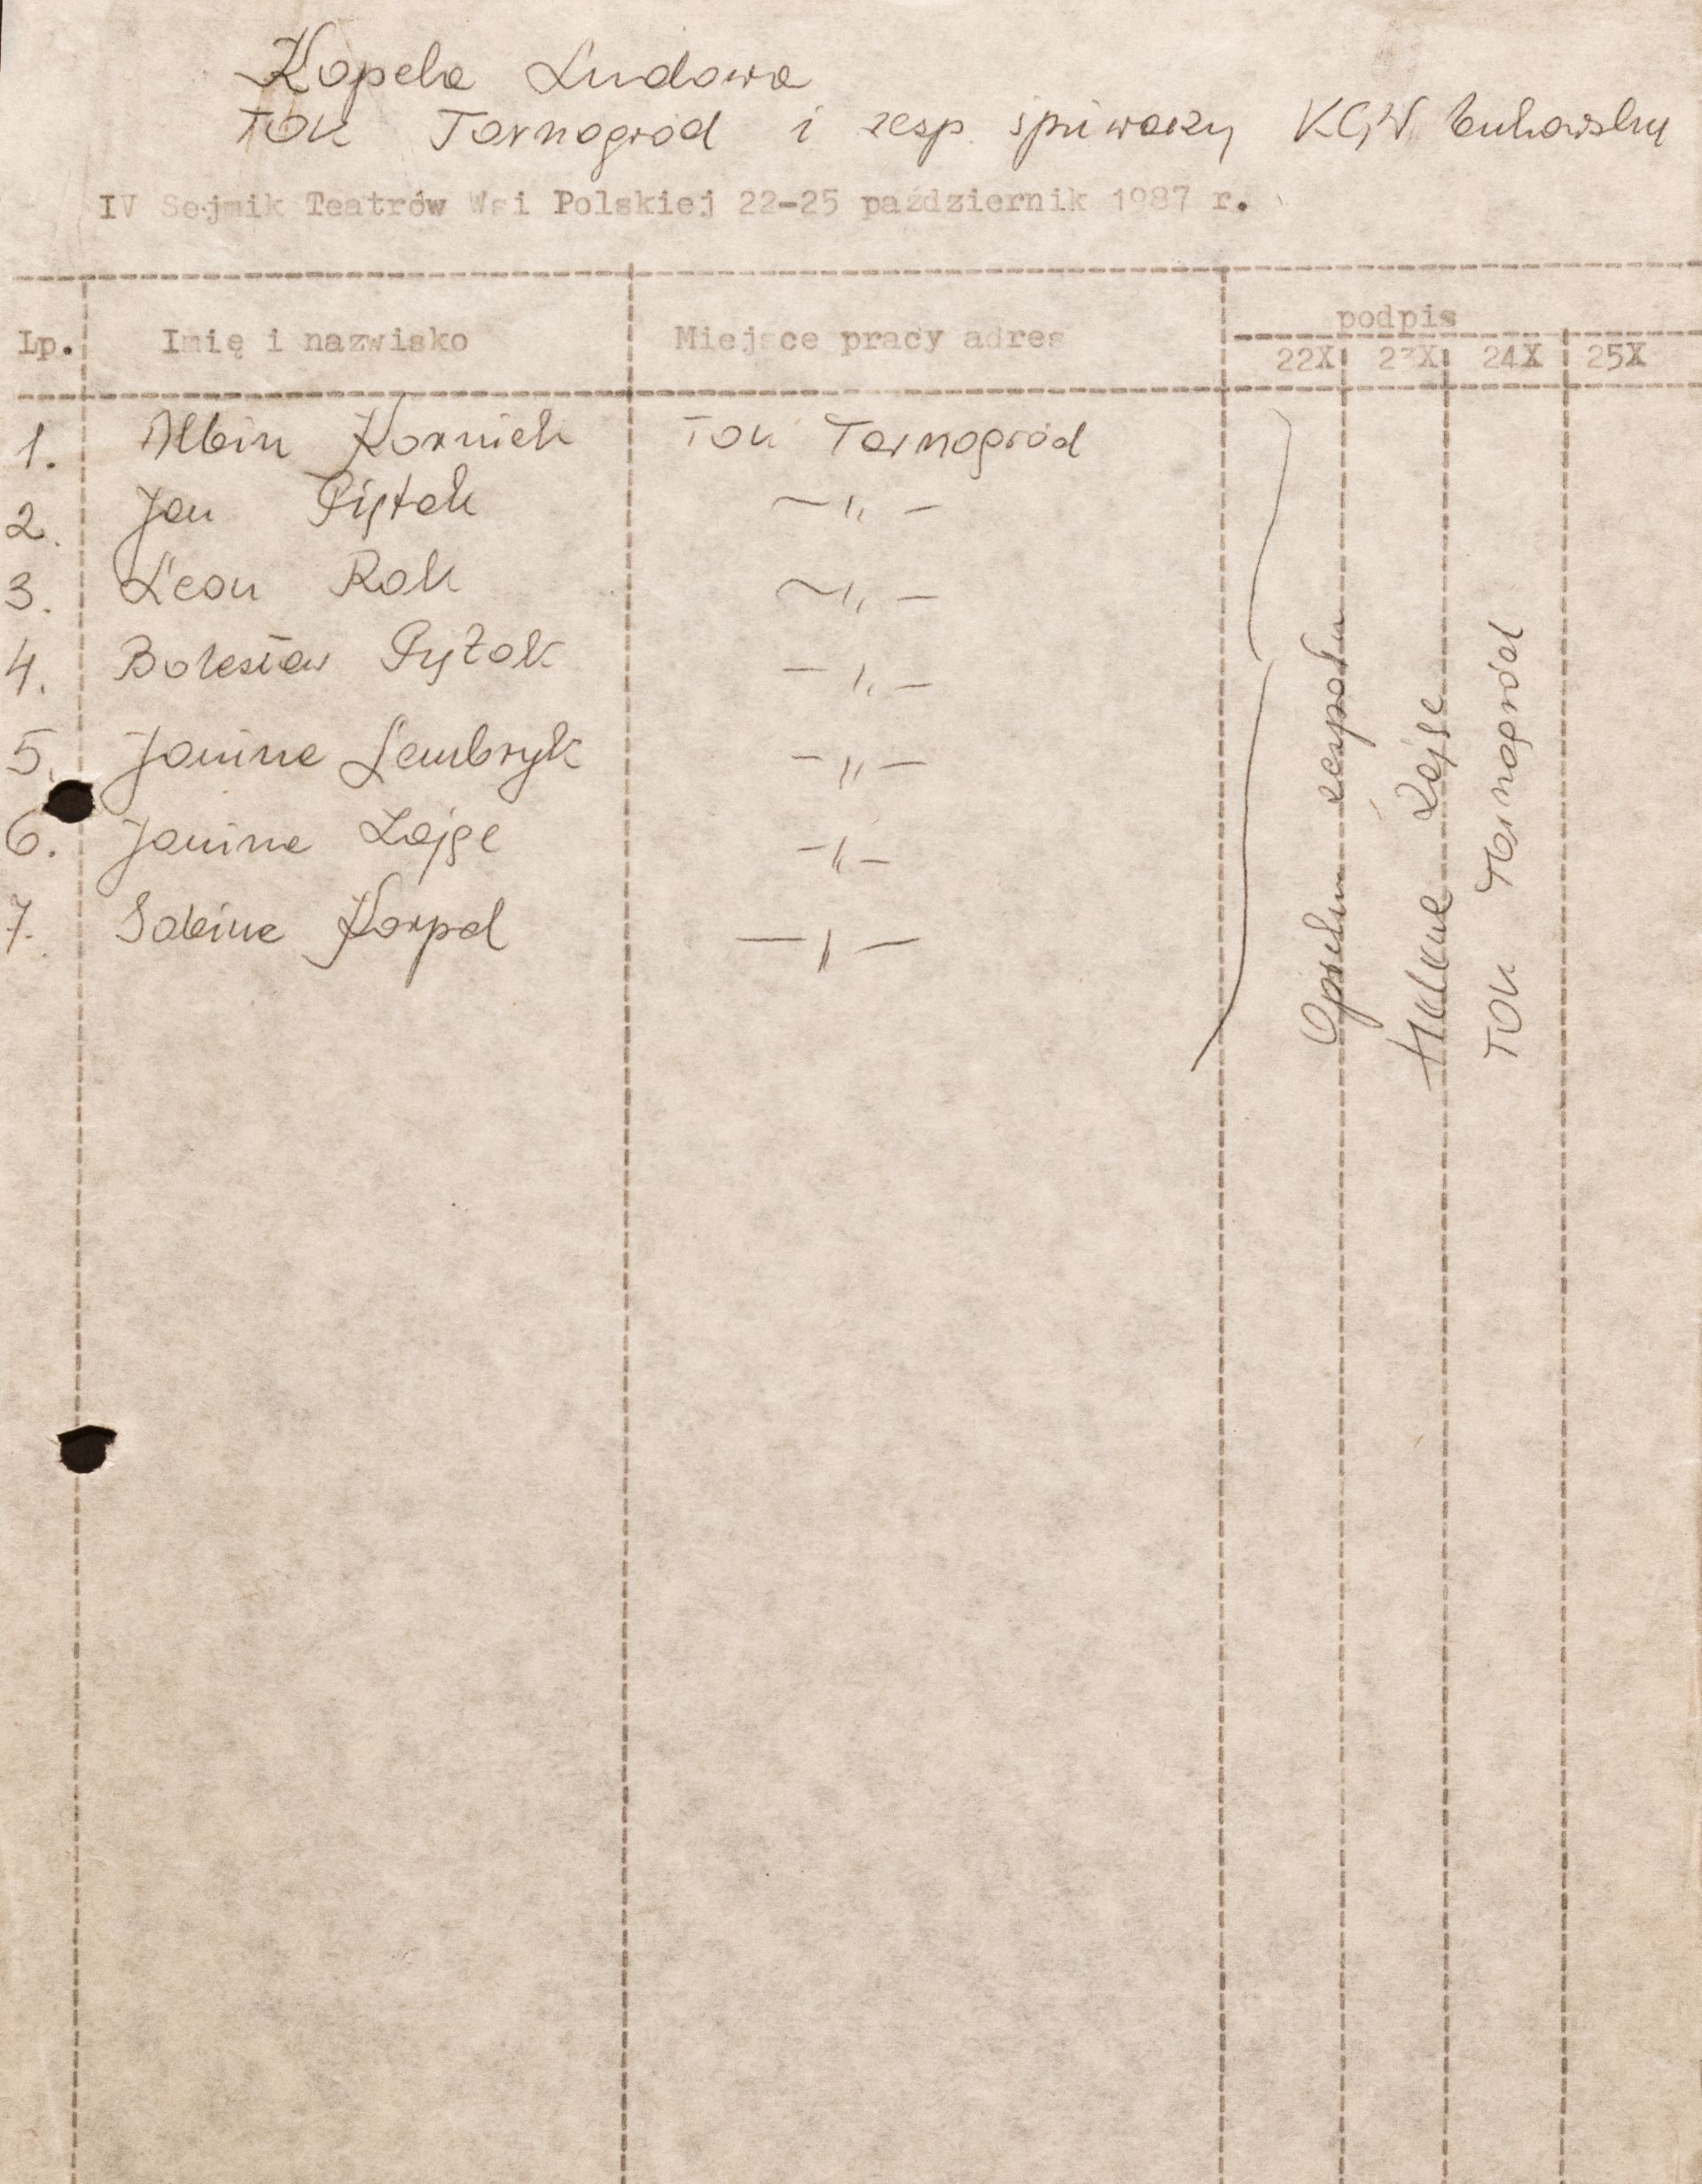 Kapela Ludowa
TOK Tarnogród i zesp. śpiewaczy KGW
IV Sejmik Teatrów Wsi Polskiej 22-25 październik 1987 r.
Lp. Imię i nazwisko Miejsce pracy adres podpis
22X 23X 24X 25X
1. Albin Korniak TOK Tarnogród
2. Jan Piętak -"-
3. Leon Rak -"-
4. Bolesław Pytlak -"-
5. Janina Lembryk -"-
6. Janina Łajge -"-
7. Sabina Karpal -"-
Opiekun zespołu
Łajge
TOK Tarnogród